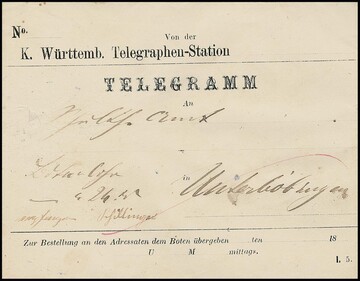 No.
Von der
K. Württemb. Telegraphen-Station
TELEGRAMM
An
Schulth. Amt
in Unterböbingen
Zur Bestellung an den Adressaten dem Boten übergeben ten 18
U M mittags.
I. 5.